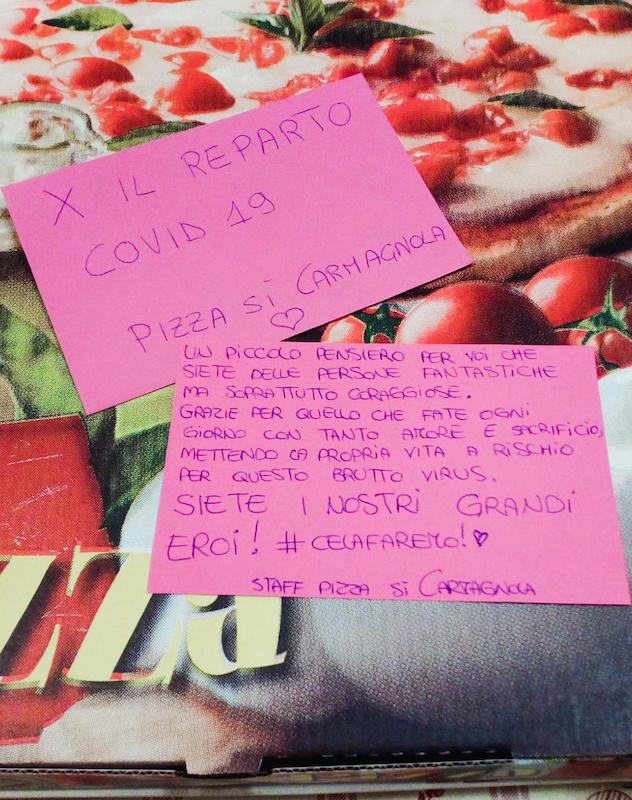 X IL REPARTO
COVID 19
PIZZA Sì CARMAGNOLA
UN PICCOLO PENSIERO PER VOI CHE
SIETE DELLE PERSONE FANTASTICHE
MA SOPRATTUTTO CORAGGIOSE.
GRAZIE PER QUELLO CHE FATE OGNI
GIORNO CON TANTO AMORE E SACRIFICIO,
METTENDO LA PROPRIA VITA A RISCHIO
PER QUESTO BRUTTO VIRUS.
SIETE I NOSTRI GRANDI
EROI! #CELAFAREMO!
STAFF PIZZA Sì CARMAGNOLA
ZZA